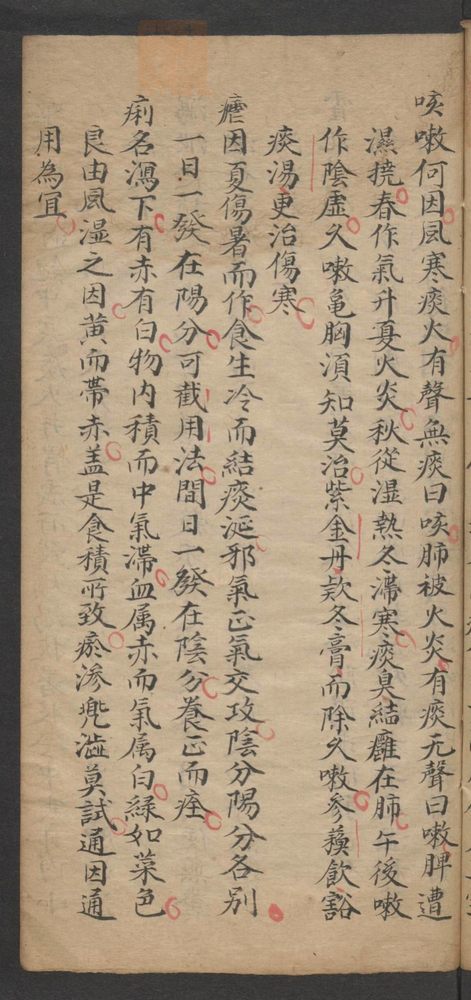 咳嗽何因風寒痰火有聲無痰曰咳肺被火炎有痰无聲曰嗽脾遭
濕撓春作氣升夏火炎秋從湿熱冬滯寒痰臭結癰在肺午後嗽
作陰虛久嗽亀胸須知莫治紫金丹欵冬膏而除久嗽參蘓飲豁
痰湯更治傷寒
瘧因夏傷暑而作食生冷而結痰涎邪氣正氣交攻陰分陽分各別
一日一發在陽分可截用法間日一發在陰分養正而痊
痢名瀉下有赤有白物内積而中氣滯血属赤而氣属白緑如菜色
良由風湿之因黄而帶赤盖是食積所致瘀滲兠澁莫試通因通
用為宜